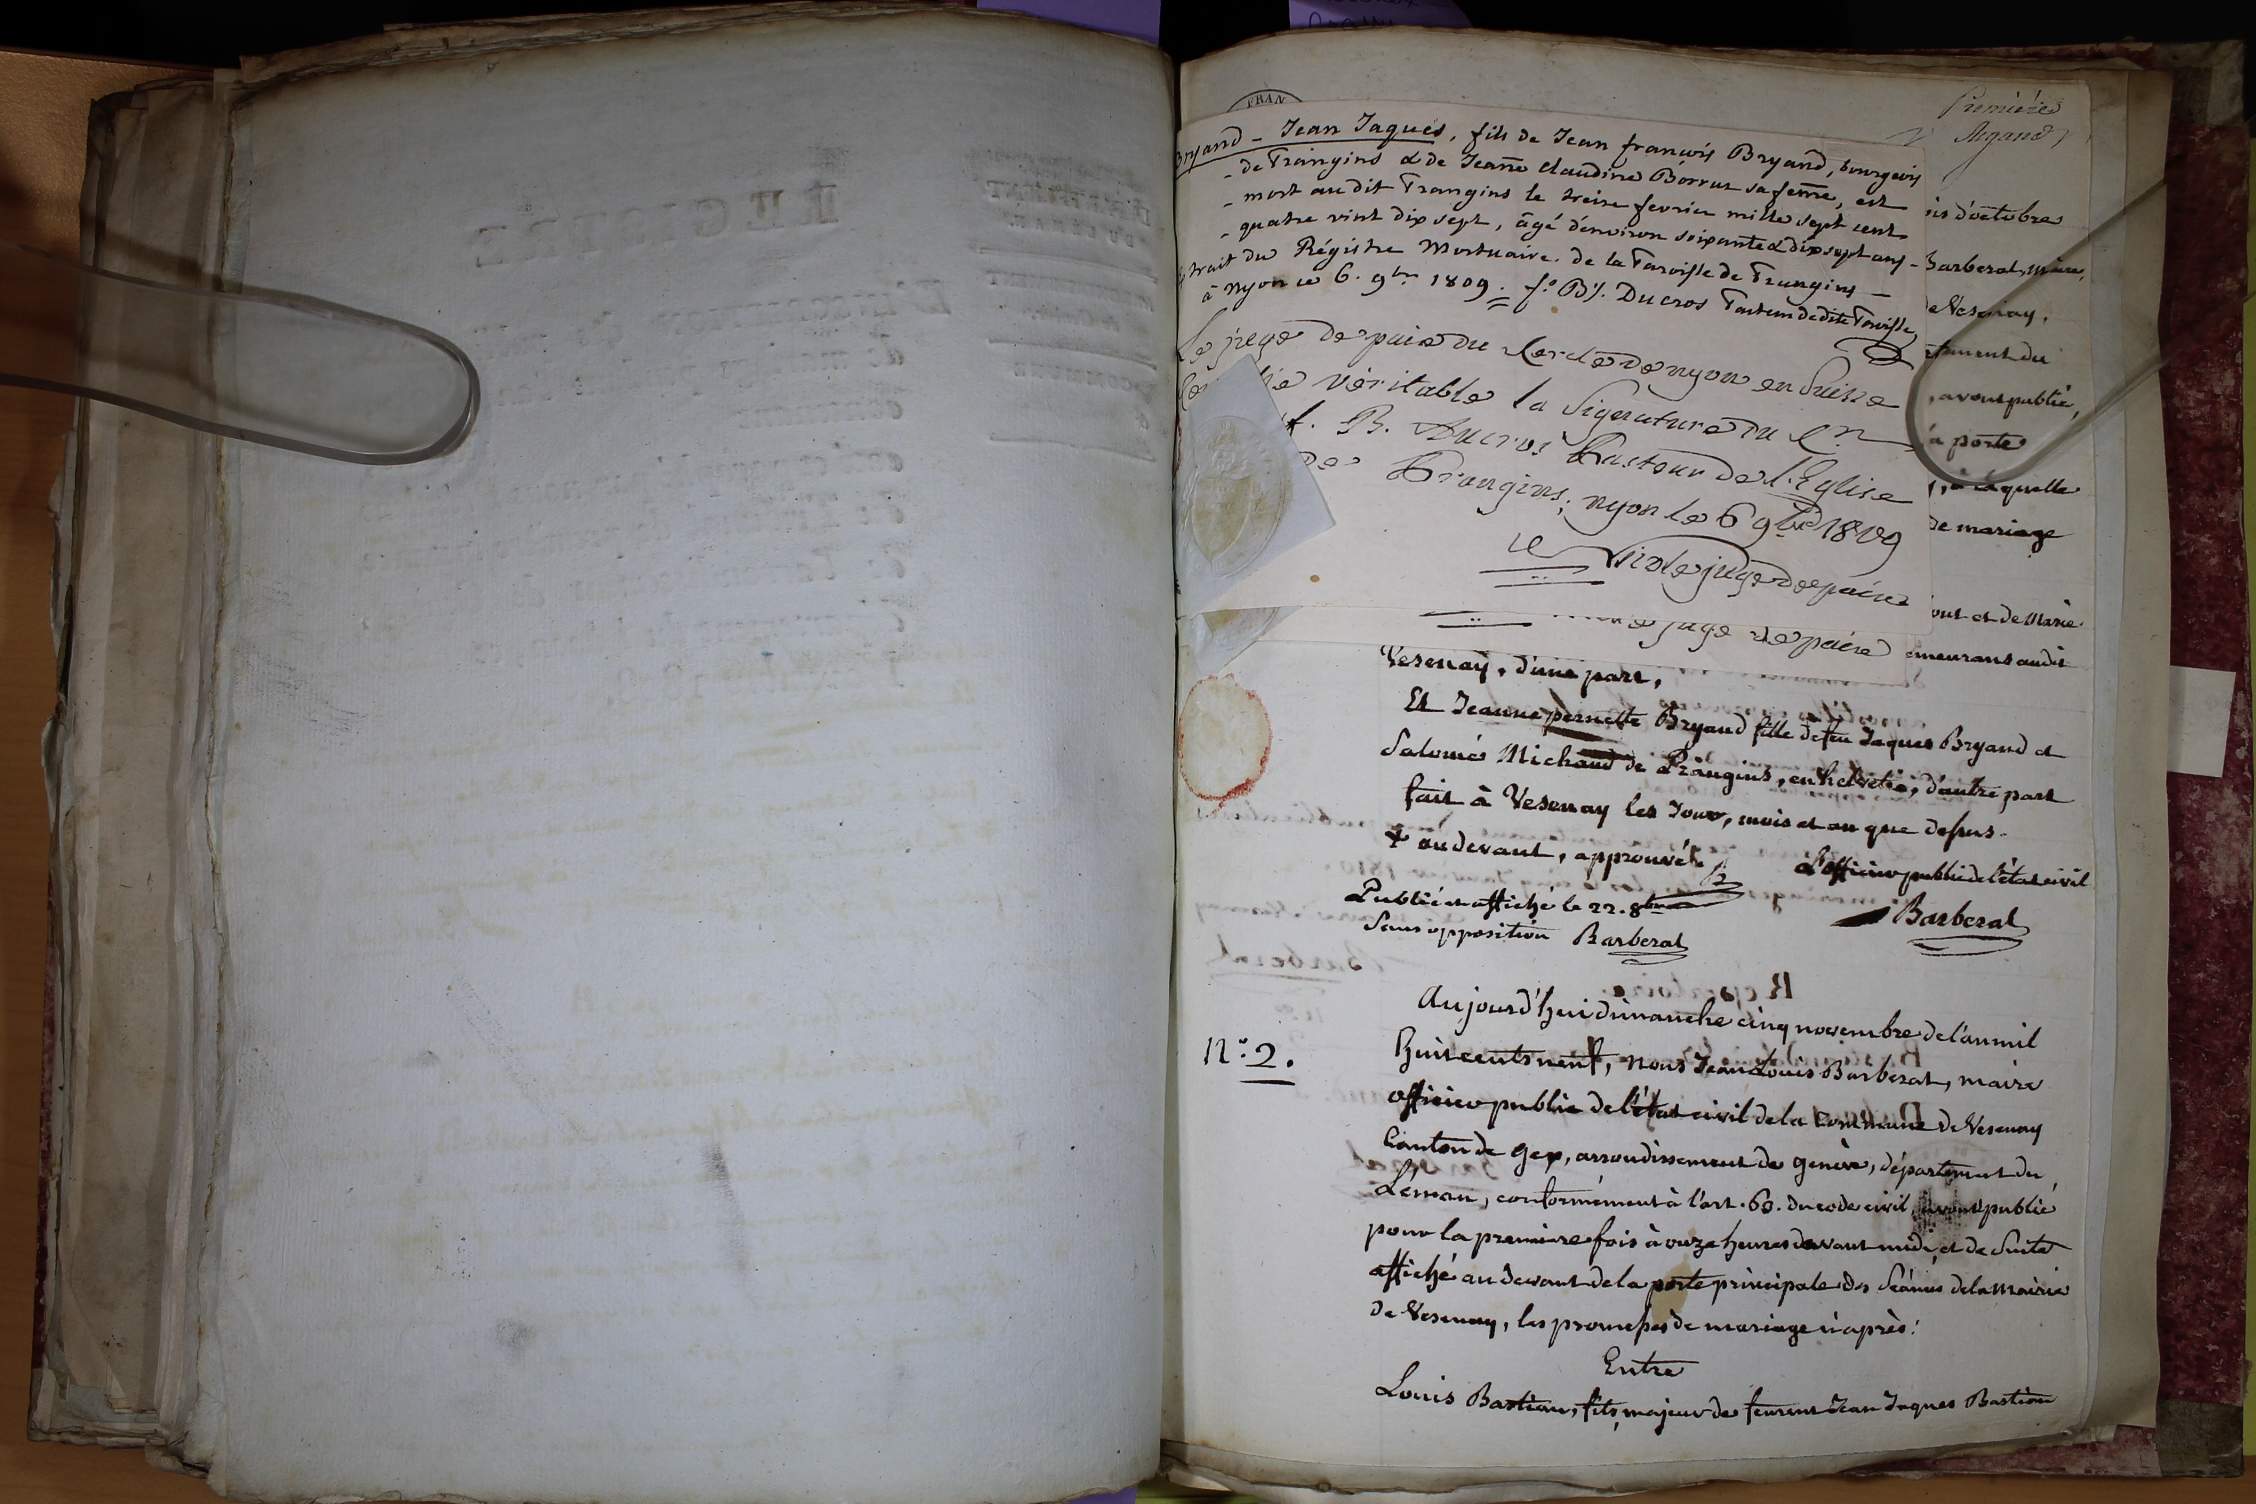 REGISTRE
FRAN
Premiere
Bryand - Jean Jaques, fils de Jean francois Bryand, bourgeois
- de Prangins & de Jeanne Claudine Borrut sa femme, est
- mort au dit Prangins le treize fevrier mille sept cent
- quatre vint dix sept, âgé d'environ soixante & dix sept ans -
trait du Régistre Mortuaire de la Paroisse de Prangins -
à Nyon ce 6. 9bre 1809. Ducros Pasteur de dite Paroisse
Le juge de paix du Cercle de nyon en Suisse
véritable la Signature du
B. Ducros Pasteur de l'Eglise
de Prangins; nyon le 6 9bre 1809
juge de paix
juge de paix
is d'octobre
Barberat, maire,
de Vesenay,
tement du
, avons publié,
a porte
, à laquelle
de mariage
out et de Marie
emeurans audit
Vesenay, d'une part,
Et Jeanne pernette Bryand fille de feu Jaques Bryand et
Salomée Michaud de Prangins, en helvetie, d'autre part
fait à Vesenay les Jour, mois et an que dessus.
+ audevant, approuvé B
L'officier public de l'état civil
Barberat
Publié et affiché le 22. 8bre
Sans opposition Barberat
N.° 2.
Aujourd'hui dimanche cinq novembre de l'an mil
huit cents neuf, Nous Jean Louis Barberat, maire
officier public de l'état civil de la Commune de Vesenay
Canton de Gex, arrondissement de Genève, département du
Léman, conformément à l'art. 63. du code civil, avons publié
pour la premiere fois à onze heures devant midi, et de Suite
affiché au devant de la porte principale des Séances de la Mairie
de Vesenay, les promesses de mariage ci après:
Entre
Louis Bastian, fils majeur de Jean Jaques Bastian